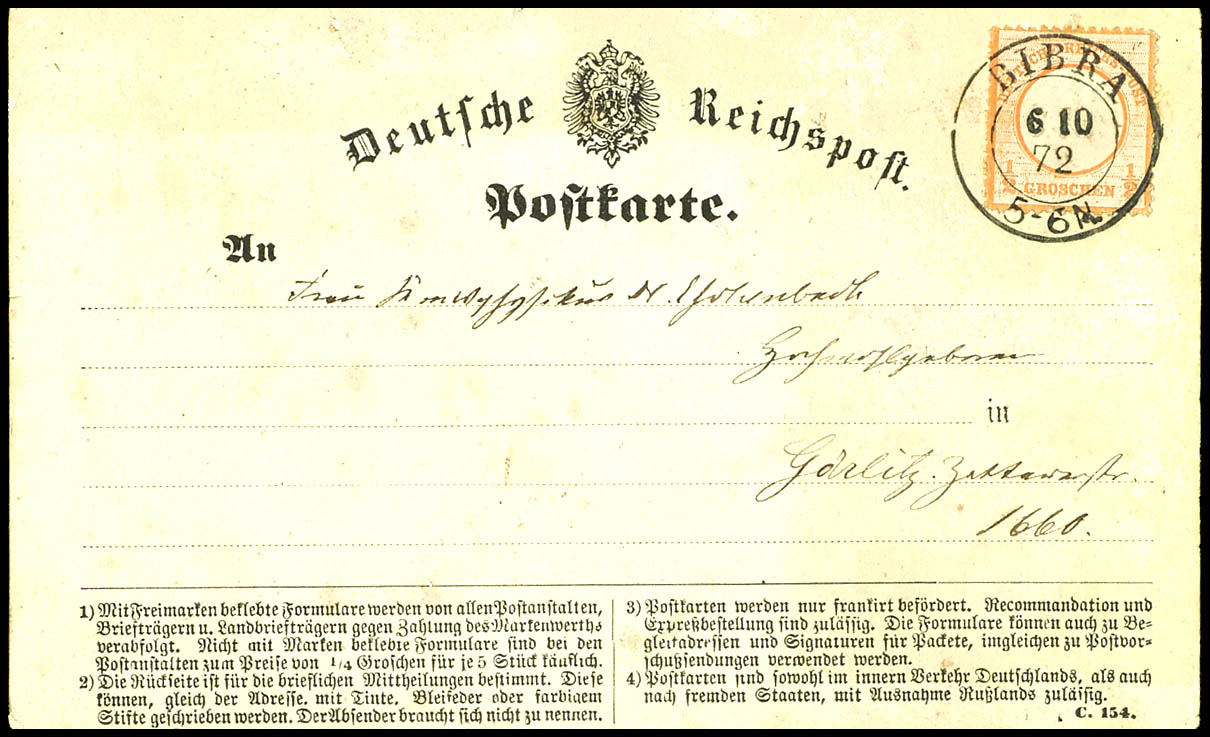 Deutsche Reichspost.
Postkarte.
BIBRA
6 10
72
5-6 N.
1/2 GROSCHEN 1/2
An
Frau Dr.
Hochwohlgeboren
in
Görlitz.
1660.
1) Mit Freimarken beklebte Formulare werden von allen Postanstalten,
Briefträgern u. Landbriefträgern gegen Zahlung des Markenwerths
verabfolgt. Nicht mit Marken beklebte Formulare sind bei den
Postanstalten zum Preise von 1/4 Groschen für je 5 Stück käuflich.
2) Die Rückseite ist für die brieflichen Mittheilungen bestimmt. Diese
können, gleich der Adresse, mit Tinte, Bleifeder oder farbigem
Stifte geschrieben werden. Der Absender braucht sich nicht zu nennen.
3) Postkarten werden nur frankirt befördert. Recommandation und
Expreßbestellung sind zulässig. Die Formulare können auch zu Be-
gleitadressen und Signaturen für Packete, imgleichen zu Postvor-
schußsendungen verwendet werden.
4) Postkarten sind sowohl im innern Verkehr Deutschlands, als auch
nach fremden Staaten, mit Ausnahme Rußlands zulässig.
C. 154.